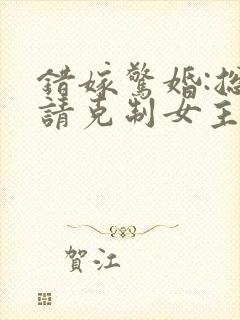 錯嫁驚婚:總
請克制女主
賀江